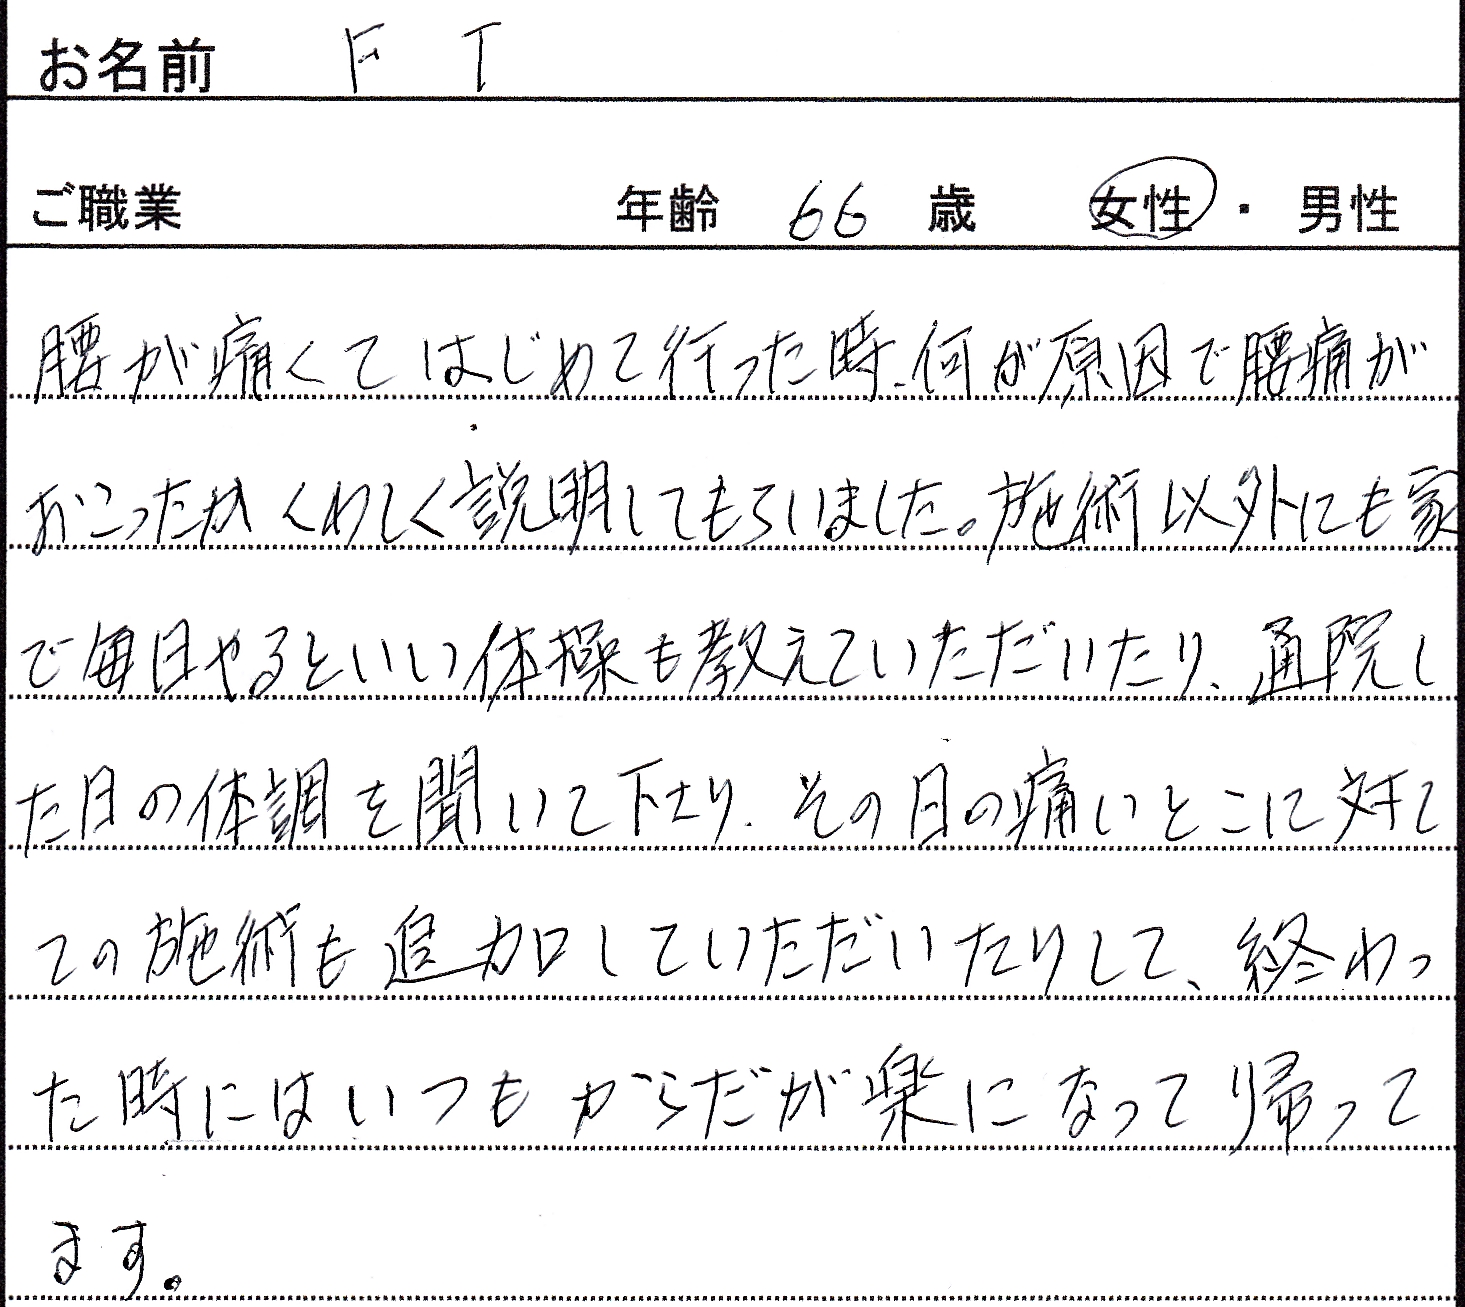 お名前 F T
ご職業 年齢 66 歳 女性 ・ 男性
腰が痛くてはじめて行った時、何が原因で腰痛が
おこったかくわしく説明してもらいました。施術以外にも家
で毎日やるといい体操も教えていただいたり、通院し
た日の体調を聞いて下さり、その日の痛いとこに対し
ての施術も追加していただいたりして、終わっ
た時にはいつもからだが楽になって帰って
ます。